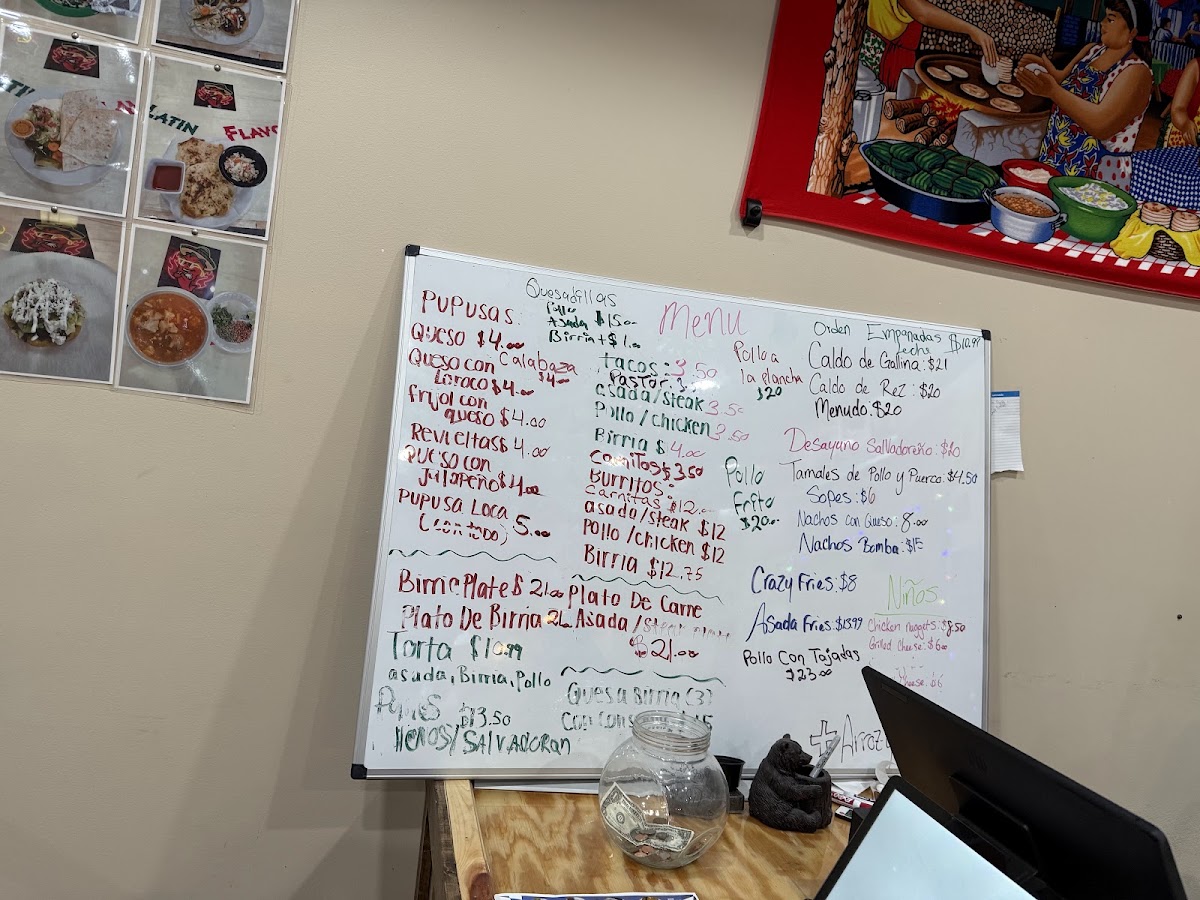 LATIN FLAVO
PUPUSAS:
QUESO $4.00
Queso con Calabaza $4.00
Loroco $4.00
frijol con
queso $4.00
Revueltas $4.00
QUESO con
Jalapeño $4.00
PUPUSA Loca
(con todo) 5.00
Birria Plate $ 21.00
Plato De Birria 21.
Torta $10.99
asada, Birria, Pollo
$13.50
/SALVADORAN
Quesadillas
Pollo
Asada $15.00
Birria + $1.00
Menu
tacos: 3.50
Pastor: 3.
asada/steak 3.50
Pollo/chicken 3.50
Birria $ 4.00
$3.50
Burritos:
Carnitas $12.
asada/steak $12
Pollo/chicken $12
Birria $12.75
Plato De Carne
Asada/steak
$21.00
Quesabirria (3)
Con
Pollo a
la plancha
$20
Pollo
Frito
$20.00
Orden Empanadas $10.99
Leche
Caldo de Gallina: $21
Caldo de Rez: $20
Menudo: $20
Desayuno Salvadoreño: $
Tamales de Pollo y Puerco: $4.50
Sopes: $6
Nachos con Queso: 8.00
Nachos Bomba: $15
Crazy Fries: $8
Asada Fries: $13.99
Pollo Con Tajadas
$23.00
Niños
Chicken Nuggets: $8.50
Grilled Cheese: $6.00
cheese: $6
+ Arroz